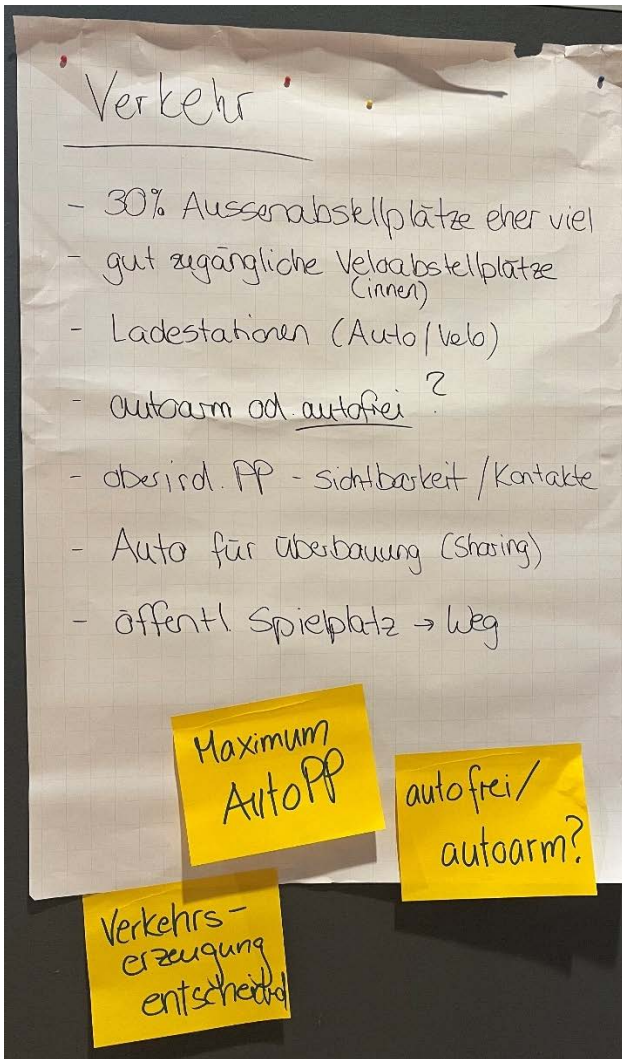 Verkehr
- 30% Aussenabstellplätze eher viel
- gut zugängliche Veloabstellplätze
(innen)
- Ladestationen (Auto/Velo)
- autoarm od. autofrei?
- oberird. PP - Sichtbarkeit/Kontakte
- Auto für Überbauung (Sharing)
- öffentl. Spielplatz → Weg
Maximum
Auto PP
autofrei/
autoarm?
Verkehrs-
erzeugung
entscheidend